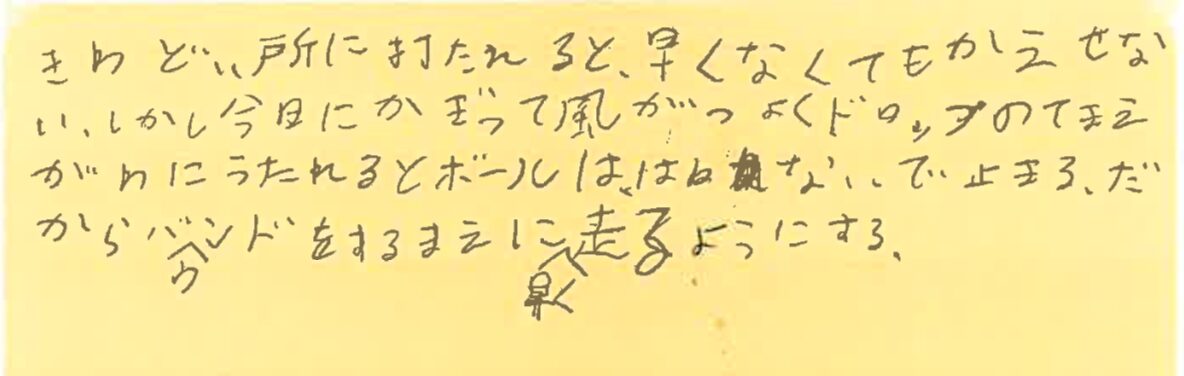 きわどい所に打たれると、早くなくてもかえせな
い、しかし今日にかぎって風がつよくドロップのてまえ
がわにうたれるとボールは、はねないで止まる、だ
からバウンドをするまえに早く走るようにする、